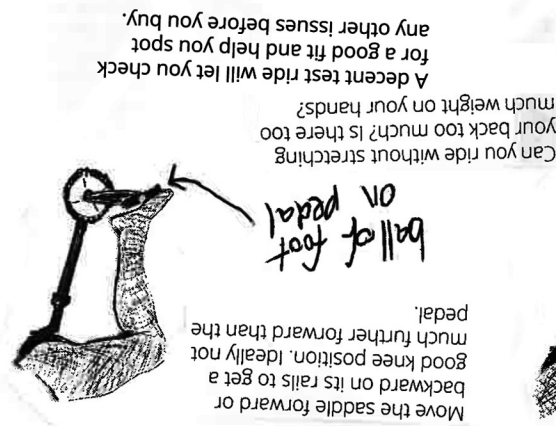 Move the saddle forward or
backward on its rails to get a
good knee position. Ideally not
much further forward than the
pedal.
ball of foot
on pedal
Can you ride without stretching
your back too much? Is there too
much weight on your hands?
A decent test ride will let you check
for a good fit and help you spot
any other issues before you buy.